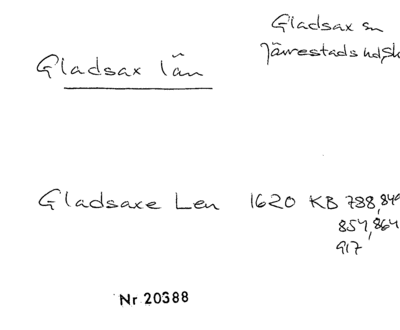 Gladsax sn
Järrestads hd, Sk
Gladsax län
Gladsaxe Len 1620 KB 788, 849
854, 864
917
Nr 20388